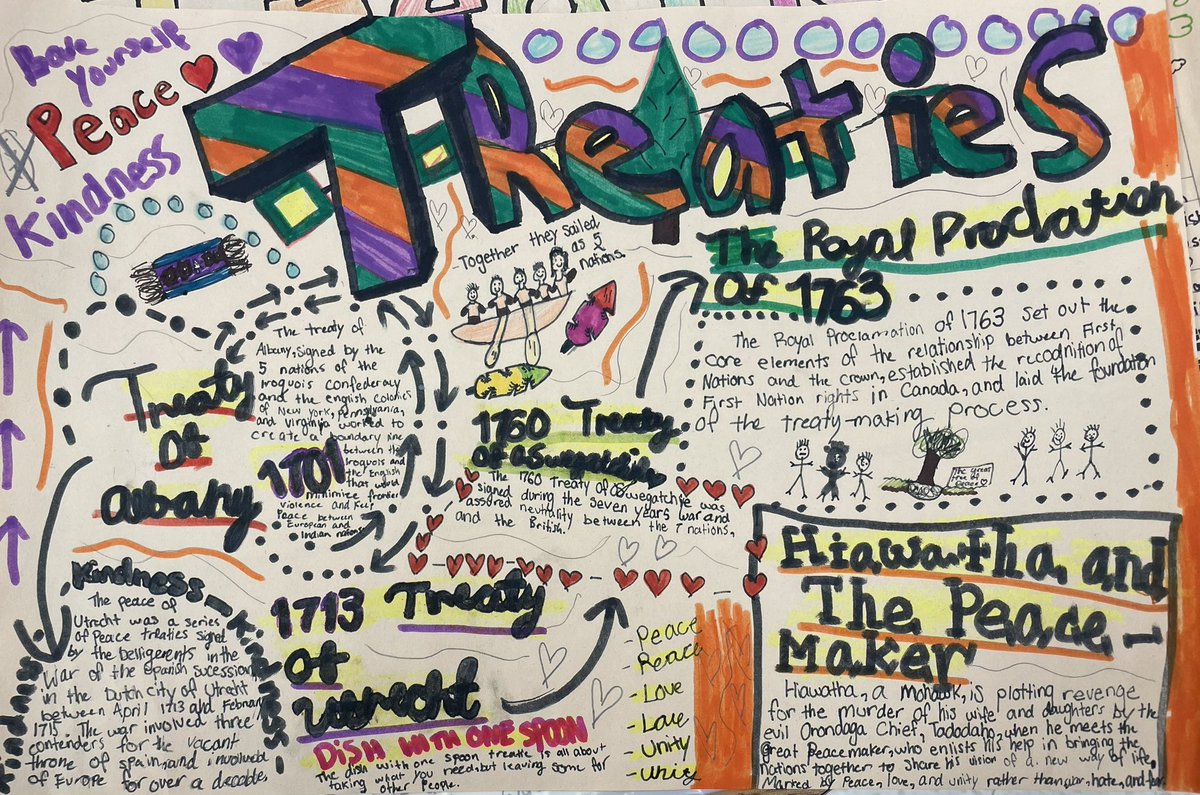 Bave
Yourself
Peace
Kindness
Treaties
-Together they sailed
as 5
nations.
The Royal Proclation
Of 1763
The Royal Proclamation of 1763 set out the
core elements of the relationship between First
Nations and the crown, established the recognition of
First Nation rights in Canada, and laid the foundation
of the treaty-making process.
The Great
tree of
Peace
Treaty
Of
Albany
1701
The treaty of
Albany, signed by the
5 nations of the
Iroquois confederacy
and the english Colonies
of New york, Pennsylvania,
and virginia worked to
create a boundary line
between the
Iroquois and
the English
that would
minimize frontier
violence and Keep
Peace between
European and
Indian nations
1760 Treaty
Of Oswegatchie
The 1760 Treaty of Oswegatchie was
signed during the Seven years war and
assored neutrality between the 7 nations,
and the British.
Kindness-Kindness-
Kindness
The peace of
Utrecht was a series
of Peace treaties signed
by the belligerents in the
War of the Spanish sucession,
in the Dutch city of Utrecht
between April 1713 and February
1715. The war involved three
contenders for the vacant
throne of spain, and involved
of Europe for over a decade.
1713 Treaty
of
Utrecht
DISH WITH ONE SPOON
The dish with one spoon treatie is all about
taking what you need, but leaving some for
other People.
-Peace
-Peace
-Love
-Love
-Unity
-Unity
Hiawatha and
The Peace-
Maker
Hiawatha, a Mohawk, is plotting revenge
for the murder of his wife and daughters by the
evil Onondaga Chief, Tadodaho, when he meets the
great Peacemaker, who enlists his help in bringing the
nations together to share his vision of a new way of life,
Marked by Peace, love, and unity rather than war, hate, and fear.